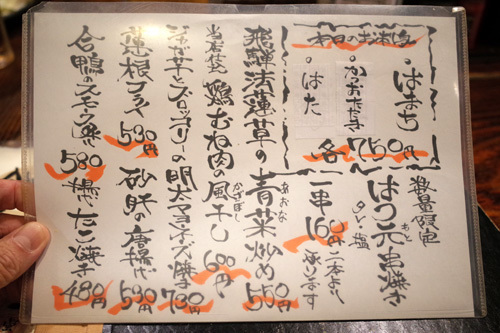 本日のお刺身
・はまち
・かつおたたき
・はた
各750円
数量限定
はつ元串焼き
もと
タレ・塩
一串160円
二本より承ります
飛騨法蓮草の
青菜炒め 550円
あおな
当店袋
鶏むね肉の風干し 600円
かざぼし
じゃが芋とブロッコリーの明太マヨチーズ焼き 730円
蓮根フライ 530円
砂肝の唐揚げ 530円
合鴨のスモーク焼 580円
揚げたこ焼き 480円